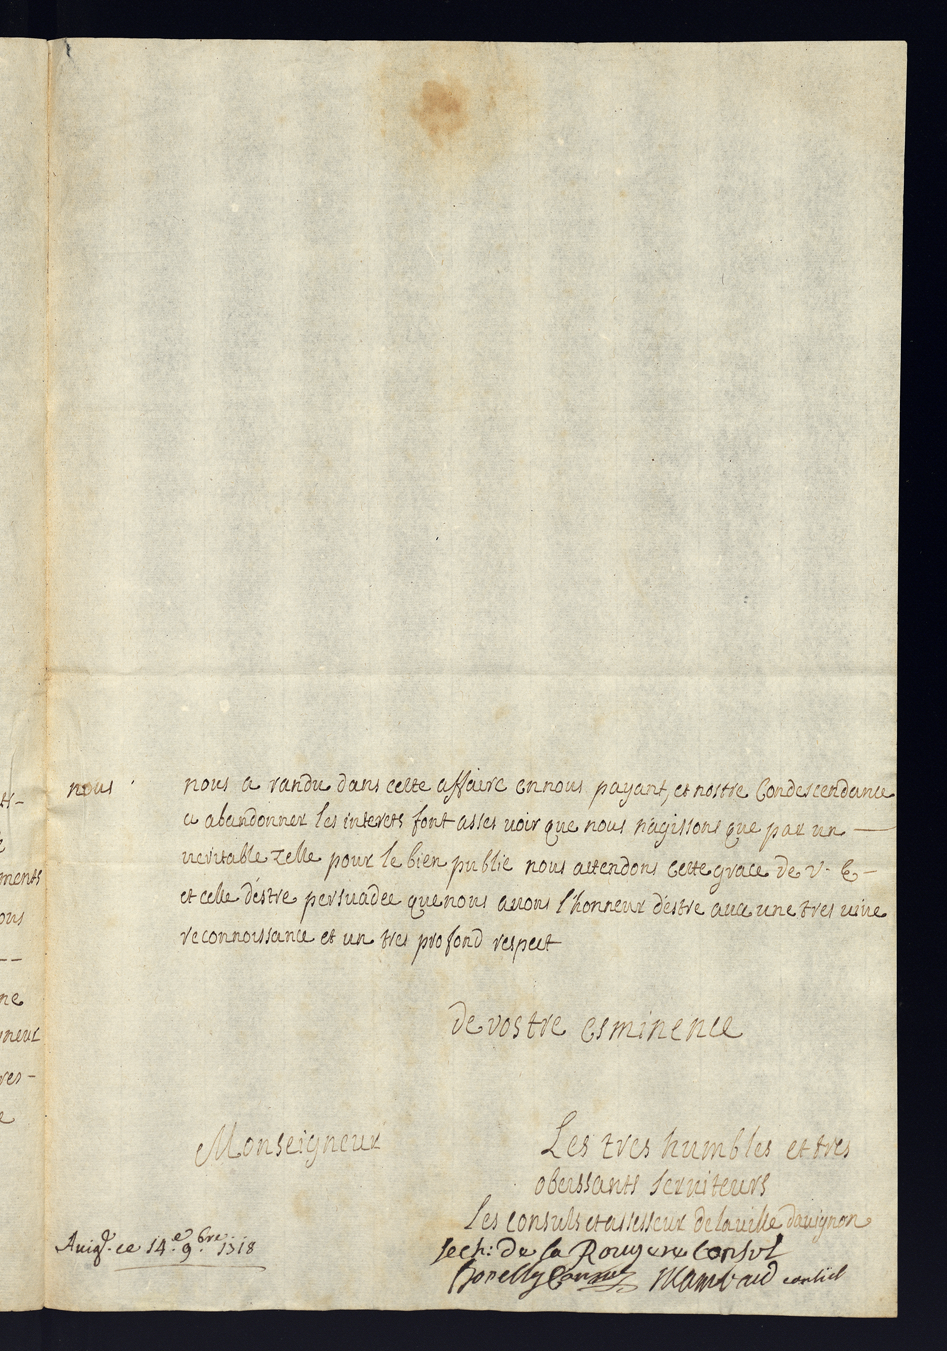 nous
nous a randu dans cette affaire en nous payant, et nostre Condescendance
a abandonner les interets font asses voir que nous n'agissons que par un —
veritable zelle pour le bien public nous attendons cette grace de v. E —
et celle d'estre persuadée que nous avons l'honneur d'estre avec une tres vive
reconnoissance et un tres profond respect
de vostre esminence
Monseigneur
Les tres humbles et tres
obeissants serviteurs
les consuls et assesseur de la ville davignon
Avig. ce 14.e 9.bre 1718
de la Consul